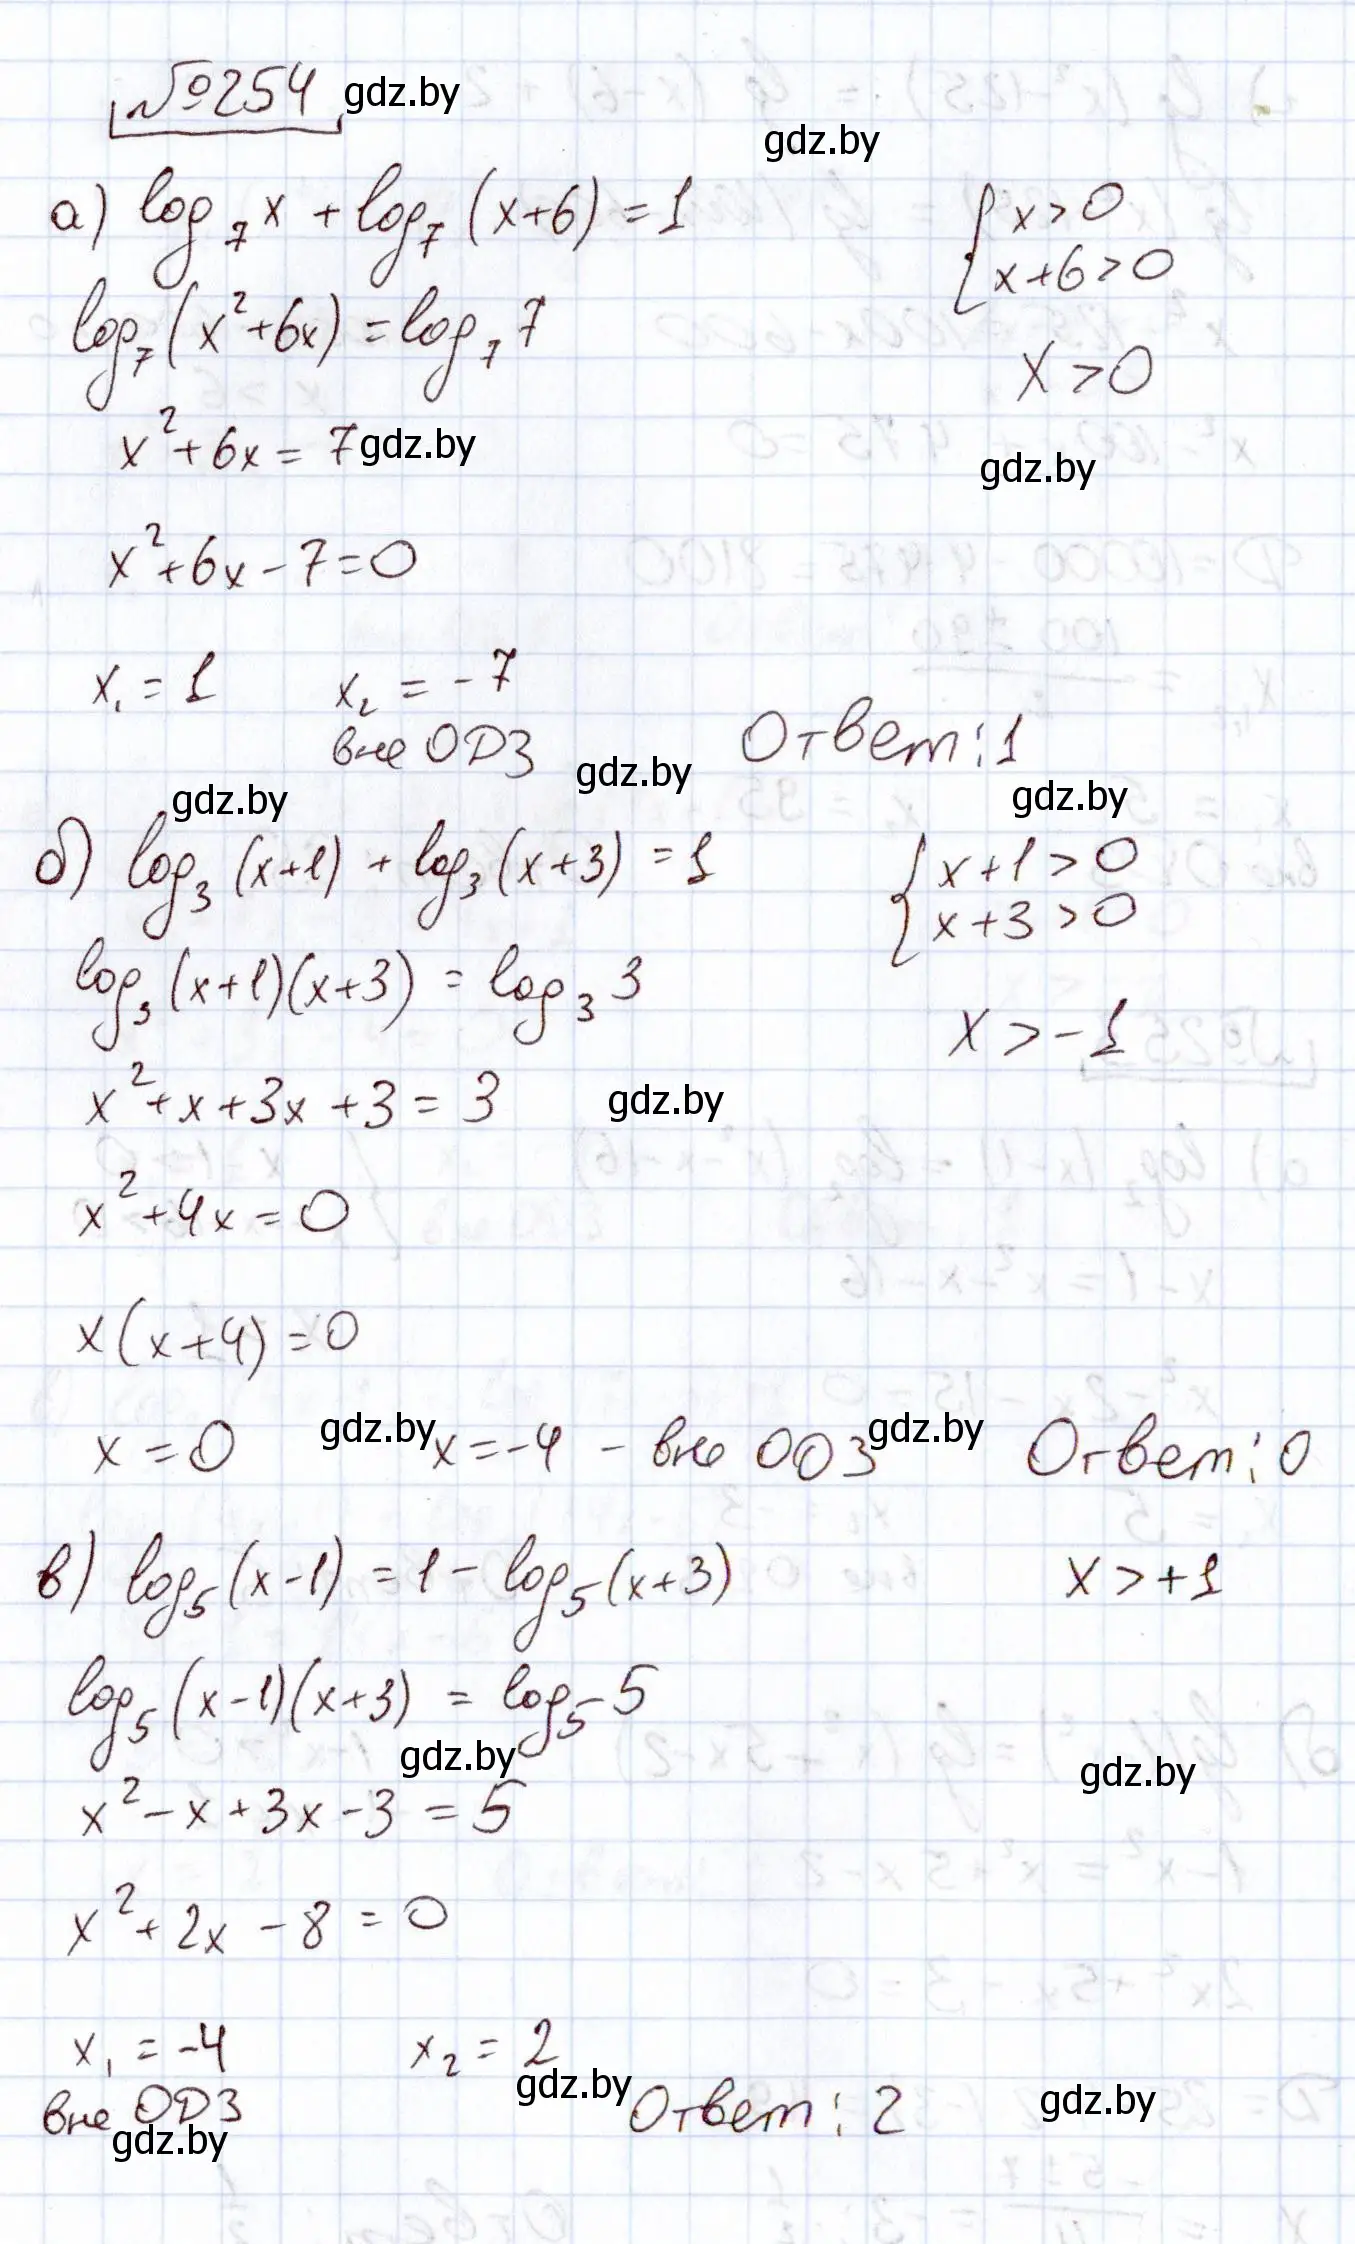 №254 gdz.by
gdz.by
а) log₇x + log₇(x+6) = 1 { x>0
x+6>0
log₇(x²+6x) = log₇7
x>0
x²+6x = 7 gdz.by
gdz.by
x²+6x-7=0
x₁ = 1 x₂ = -7
вне ОДЗ Ответ: 1
gdz.by
gdz.by gdz.by
б) log₃(x+1) + log₃(x+3) = 1 { x+1>0
x+3>0
log₃(x+1)(x+3) = log₃3
x>-1
x²+x+3x+3 = 3 gdz.by
x²+4x=0
x(x+4)=0
x=0 gdz.by x=-4 - вне ООЗ gdz.by Ответ: 0
в) log₅(x-1) = 1 - log₅(x+3) x>+1
log₅(x-1)(x+3) = log₅5
gdz.by gdz.by
x²-x+3x-3 = 5
x²+2x-8=0
x₁ = -4 x₂ = 2
вне ОДЗ gdz.by Ответ: 2 gdz.by
gdz.by